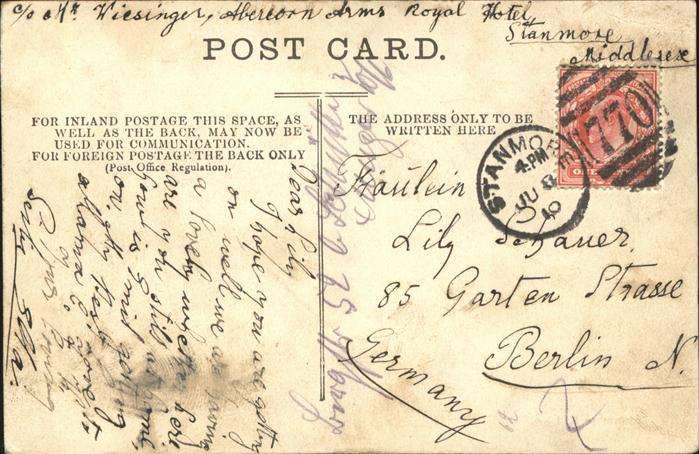 c/o Mr Wiesinger, Abercorn Arms Royal Hotel
Stanmore
Middlesex
POST CARD.
FOR INLAND POSTAGE THIS SPACE, AS
WELL AS THE BACK, MAY NOW BE
USED FOR COMMUNICATION.
FOR FOREIGN POSTAGE THE BACK ONLY
(Post Office Regulation).
THE ADDRESS ONLY TO BE
WRITTEN HERE
STANMORE
4.PM
JU
10
770
Dear Lily
I hope you are getting
on well we are having
a lovely here
are you still at home,
how is Emil getting
on, with best to
Mama
Ella.
Fräulein
Lily Schauer
85 Garten Strasse
Berlin N.
Germany